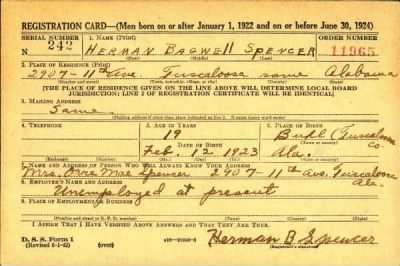 REGISTRATION CARD—(Men born on or after January 1, 1922 and on or before June 30, 1924)
SERIAL NUMBER 1. NAME (Print) ORDER NUMBER
242 HERMAN BAGWELL SPENCER 11965
(First) (Middle) (Last)
2. PLACE OF RESIDENCE (Print)
2907-11th Ave. Tuscaloosa same Alabama
(Number and street) (Town, township, village, or city) (County) (State)
[THE PLACE OF RESIDENCE GIVEN ON THE LINE ABOVE WILL DETERMINE LOCAL BOARD
JURISDICTION; LINE 2 OF REGISTRATION CERTIFICATE WILL BE IDENTICAL]
3. MAILING ADDRESS
Same
4. TELEPHONE 5. AGE IN YEARS 6. PLACE OF BIRTH
19 Buhl (Tuscaloosa
DATE OF BIRTH Co.
Feb. 12 1923 Ala.
7. NAME AND ADDRESS OF PERSON WHO WILL ALWAYS KNOW YOUR ADDRESS
Mrs. Mae Spencer 2907-11th Ave. Tuscaloosa
Ala.
8. EMPLOYER'S NAME AND ADDRESS
Unemployed at present
9. PLACE OF EMPLOYMENT OR BUSINESS
I AFFIRM THAT I HAVE VERIFIED ABOVE ANSWERS AND THAT THEY ARE TRUE.
D. S. S. Form 1
(Revised 6-1-42) Herman B. Spencer
(Registrant's signature)